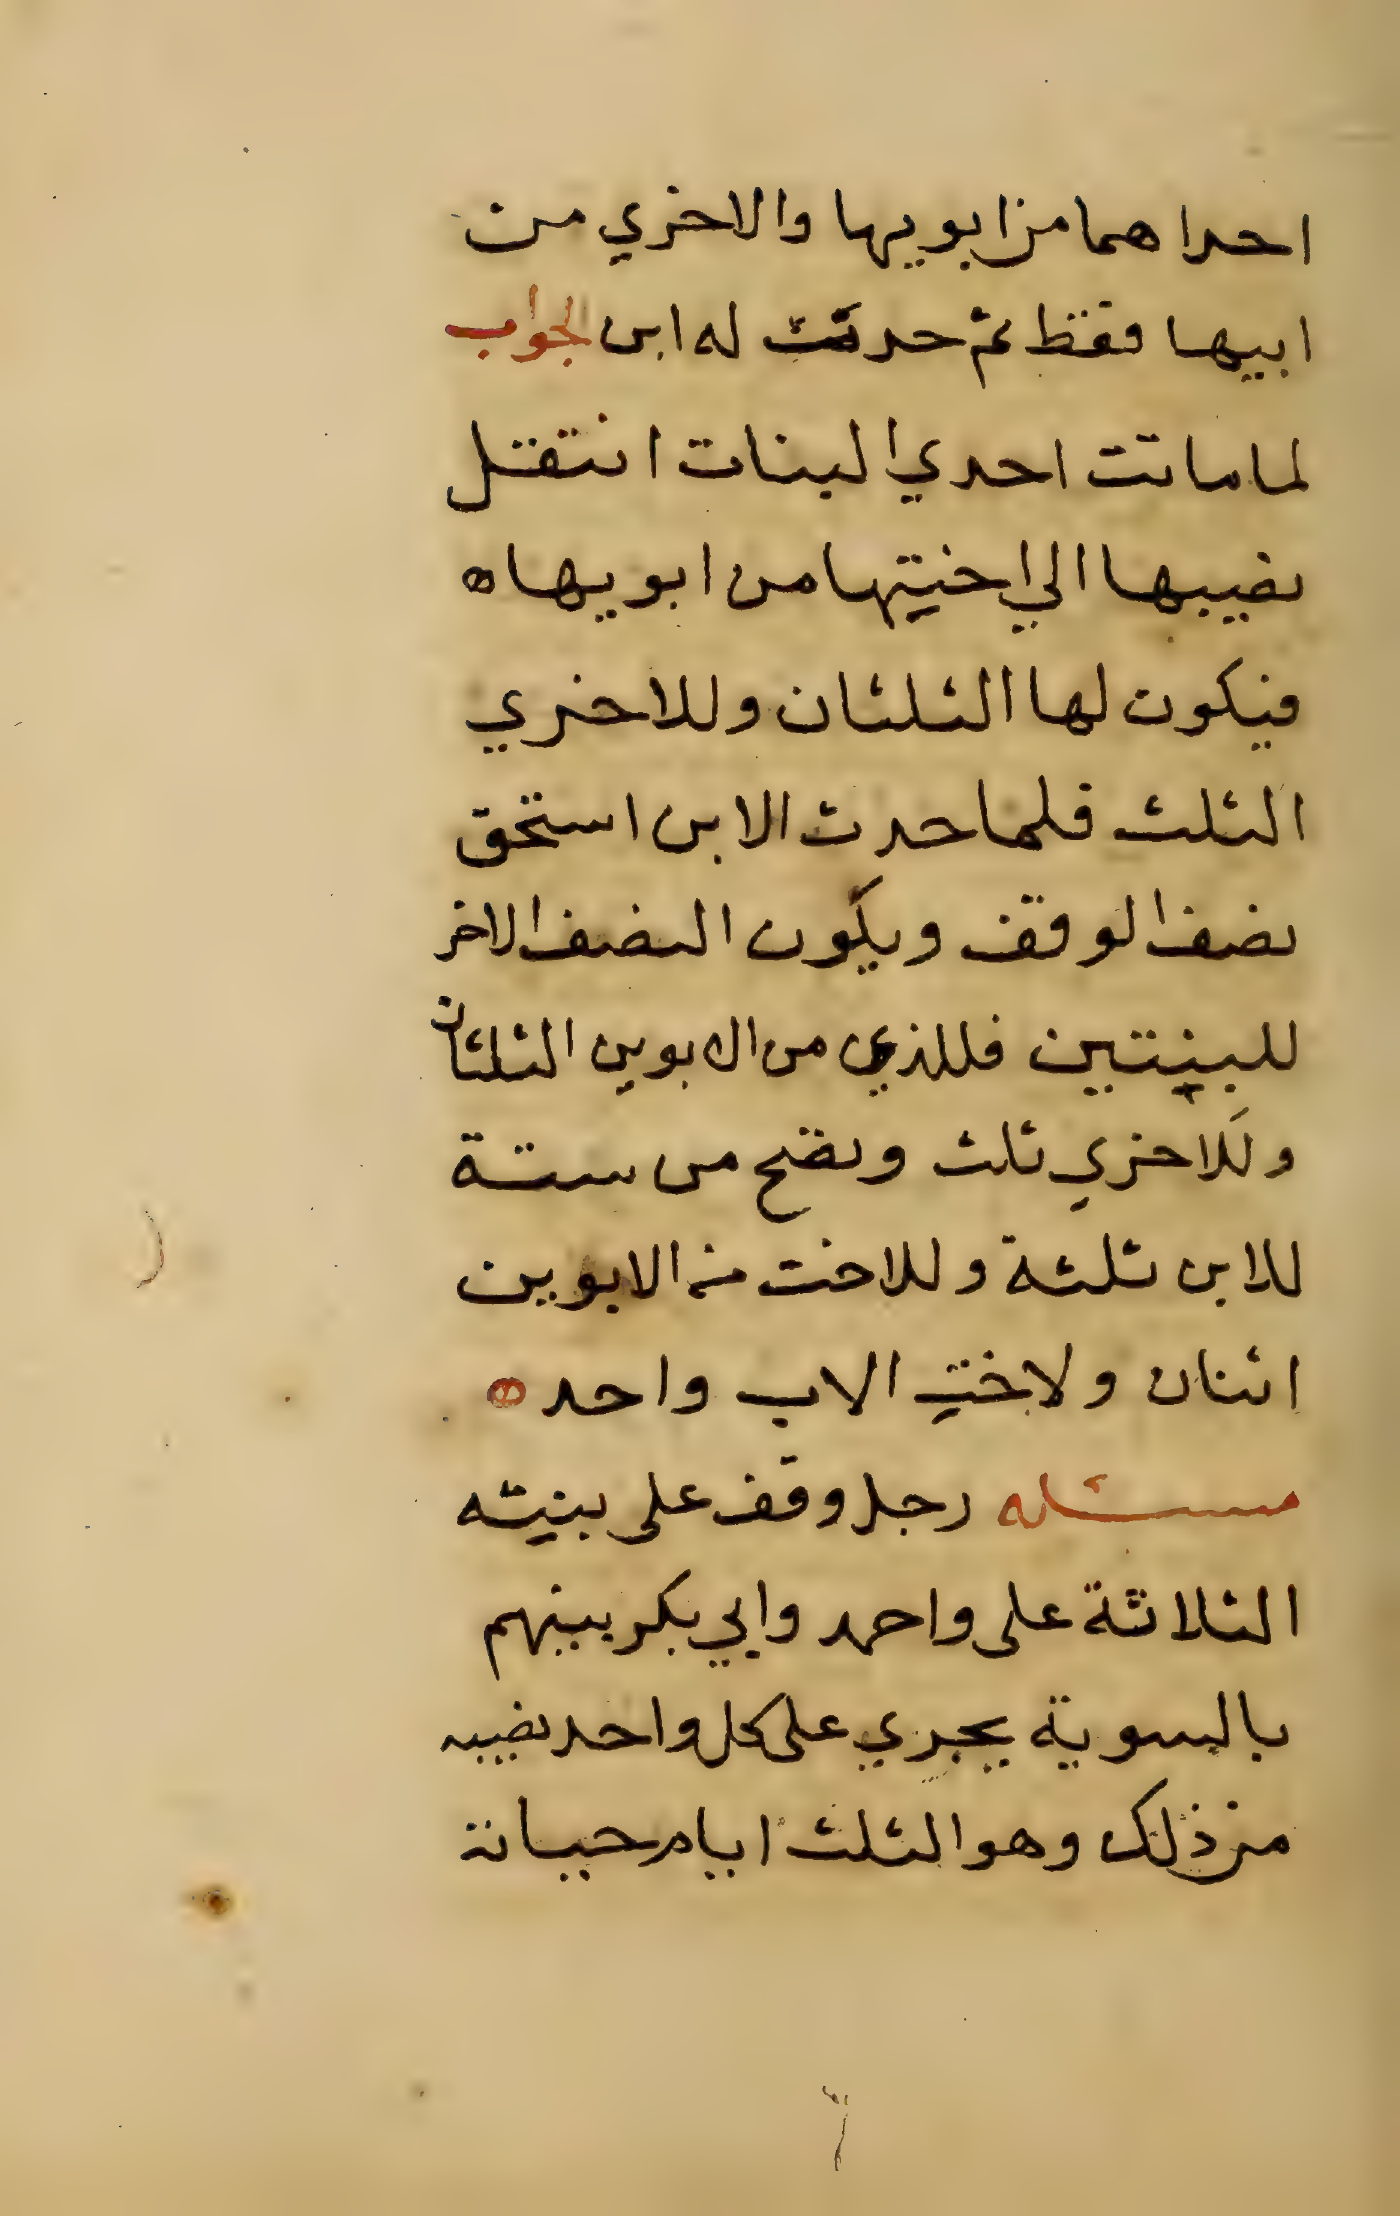 احداهما من ابويها والاخري من
ابيها فقط ثم حدثت له ابن الجواب
لما ماتت احدي البنات انتقل
نصيبها الي اختها من ابويها ه
فيكون لها الثلثان وللاخري
الثلث فلما حدث الابن استحق
نصف الوقف ويكون النصف الاخر
للبنتين فللذي من الابوين الثلثان
وللاخري ثلث وتصح من ستة
للابن ثلثة وللاخت من الابوين
اثنان ولاخت الاب واحد ه
مسئله رجل وقف علي بنيه
الثلاثة علي واحمد وابي بكر بينهم
بالسوية يجري علي كل واحد نصيبه
من ذلك وهو الثلث ايام حياته